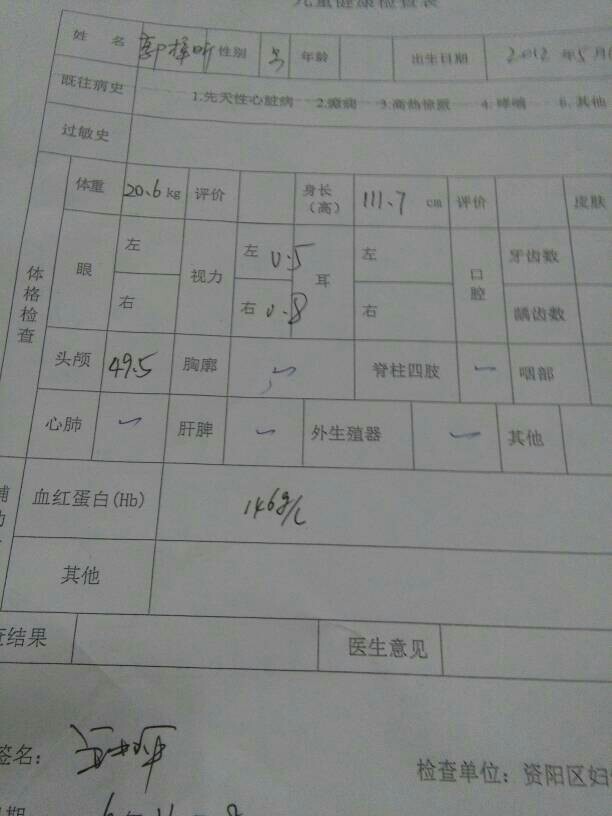 儿童健康检查表
姓 名 性别 年龄 出生日期 2012 年5月
既往病史 1.先天性心脏病 2.癫痫 3.高热惊厥 4.哮喘 5.其他
过敏史
体格检查
体重 20.6 kg 评价 身长（高） 111.7 cm 评价 皮肤
眼 左 视力 左 0.5 耳 左 口腔 牙齿数
右 右 0.8 右 龋齿数
头颅 49.5 胸廓 脊柱四肢 咽部
心肺 肝脾 外生殖器 其他
血红蛋白(Hb) 146g/L
其他
查结果 医生意见
签名：
检查单位：资阳区妇
日期